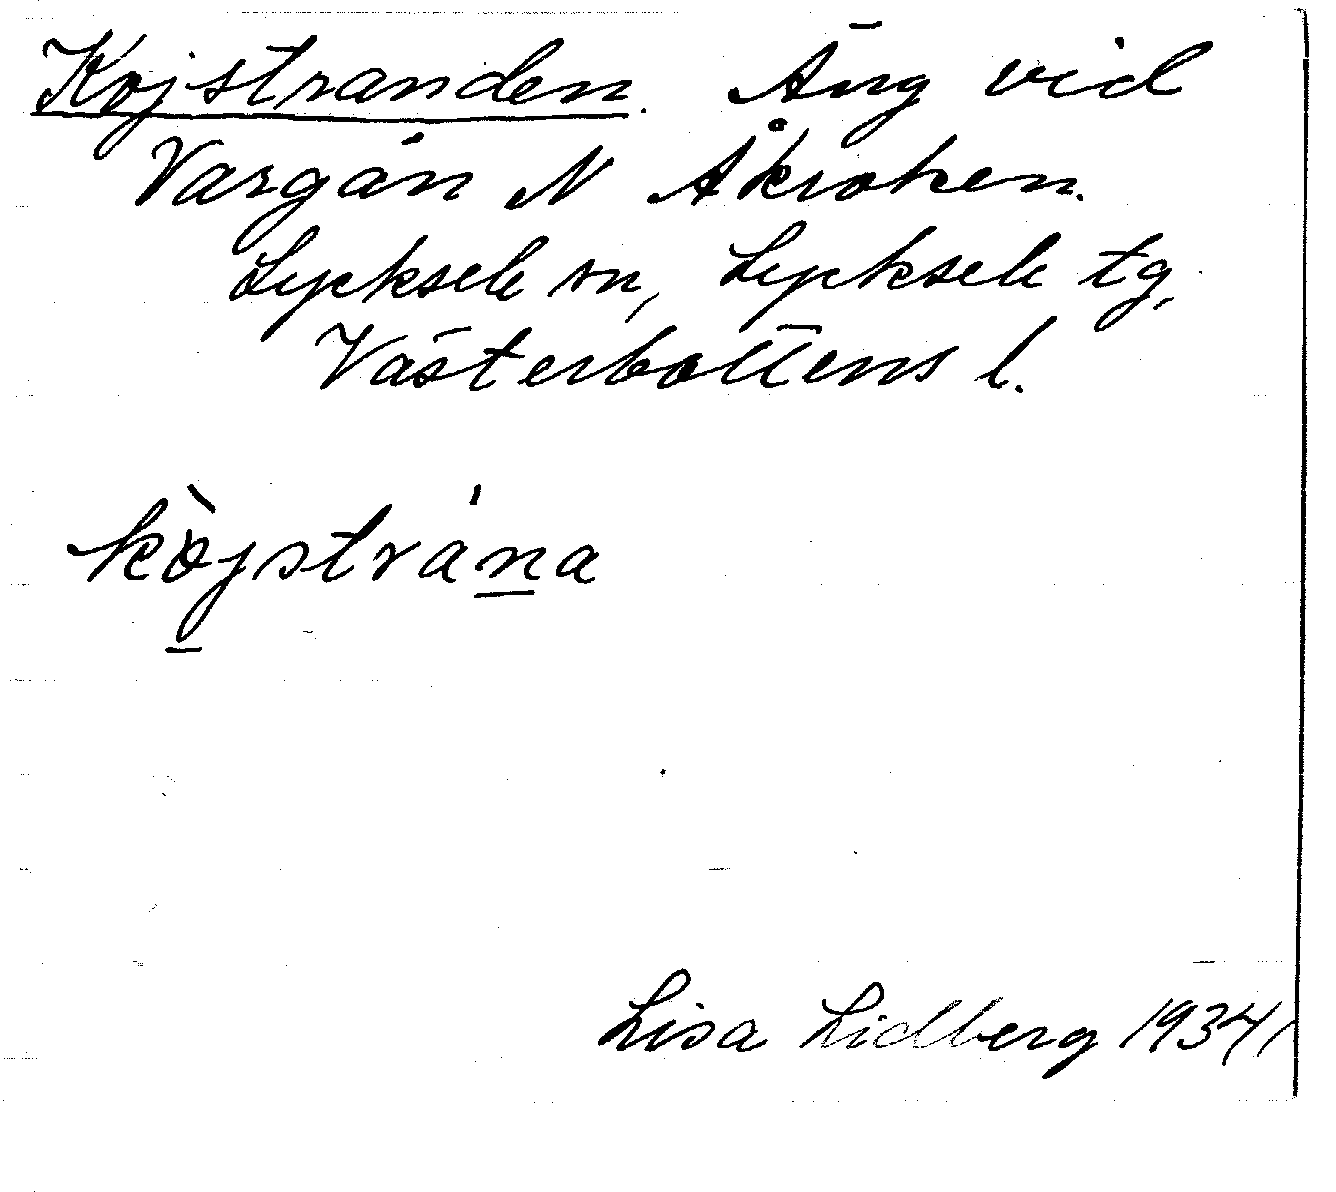 Kojstranden. Äng vid
Vargån N Åkroken.
Lycksele sn, Lycksele tg,
Västerbottens l.
kòjstrána
Lisa Lidberg 1934